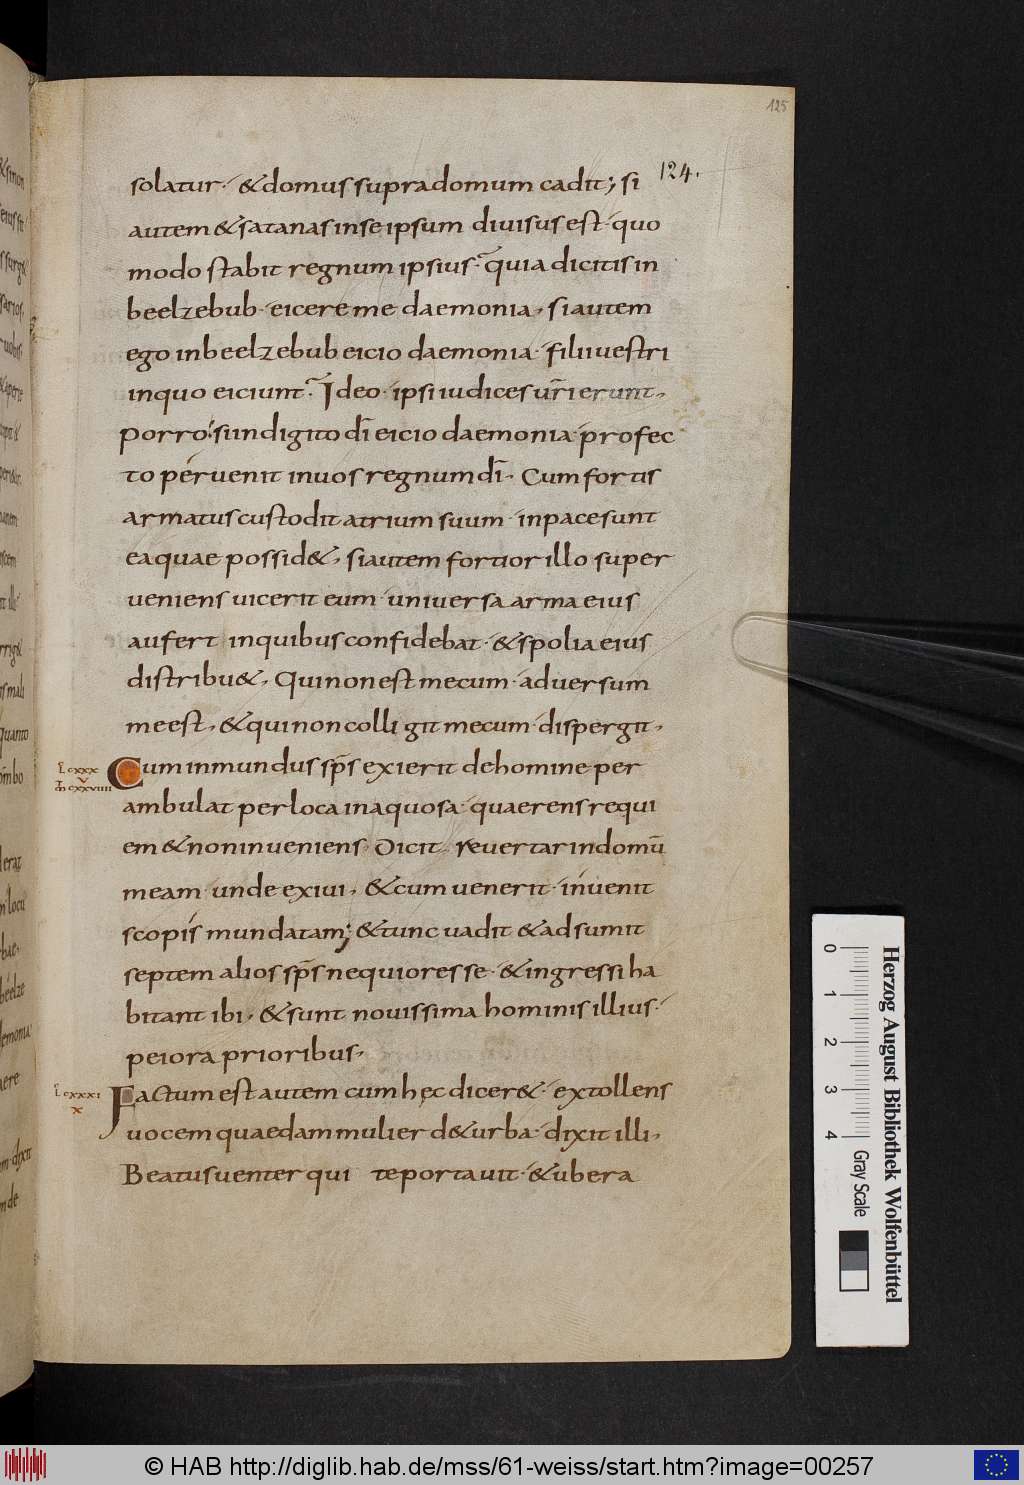 125
124.
solatur· &domus supra domum cadit; si
autem & satanas in se ipsum diuisus est· quo
modo stabit regnum ipsius? quia dicitis in
beelzebub· eicere me daemonia, si autem
ego in beelzebub eicio daemonia· filii uestri
in quo eiciunt? Ideo· ipsi iudices ur̄i erunt,
Porro· si in digito dī eicio daemonia· profec
to peruenit in uos regnum dī. Cum fortis
armatus custodit atrium suum· in pace sunt
ea quae possid&, si autem fortior illo super
ueniens uicerit eum· uniuersa arma eius
aufert in quibus confidebat· & spolia eius
distribu&, Qui non est mecum· aduersum
me est, & qui non colligit mecum· dispergit,
L cxxx
v
m̄ cxxviiii
Cum inmundus sps̄ exierit de homine per
ambulat per loca inaquosa· quaerens requi
em & non inueniens. Dicit. reuertar in domū
meam· unde exiui, & cum uenerit· inuenit
scopis mundatam; & tunc uadit & adsumit
septem alios sps̄ nequiores se· & ingressi ha
bitant ibi, & sunt nouissima hominis illius·
peiora prioribus,
L cxxxi
x
Factum est autem cum hęc dicer&· extollens
uocem quaedam mulier de turba· dixit illi,
Beatus uenter qui te portauit· & ubera
0 1 2 3 4
Gray Scale
Herzog August Bibliothek Wolfenbüttel
© HAB http://diglib.hab.de/mss/61-weiss/start.htm?image=00257